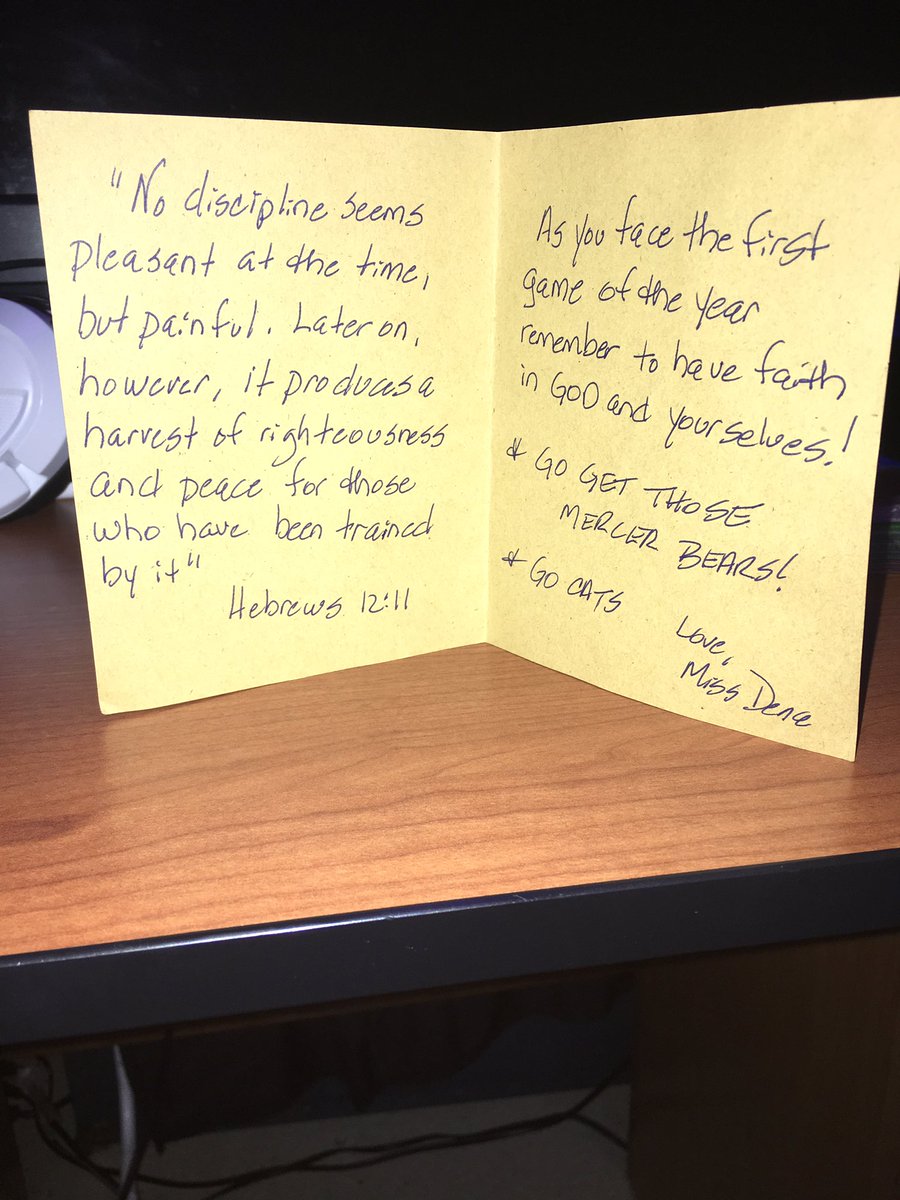 "No discipline seems
pleasant at the time,
but painful. Later on,
however, it produces a
harvest of righteousness
and peace for those
who have been trained
by it"
Hebrews 12:11
As you face the first
game of the year
remember to have faith
in GOD and yourselves!
& GO GET THOSE
MERCER BEARS!
& GO CATS
Love,
Miss